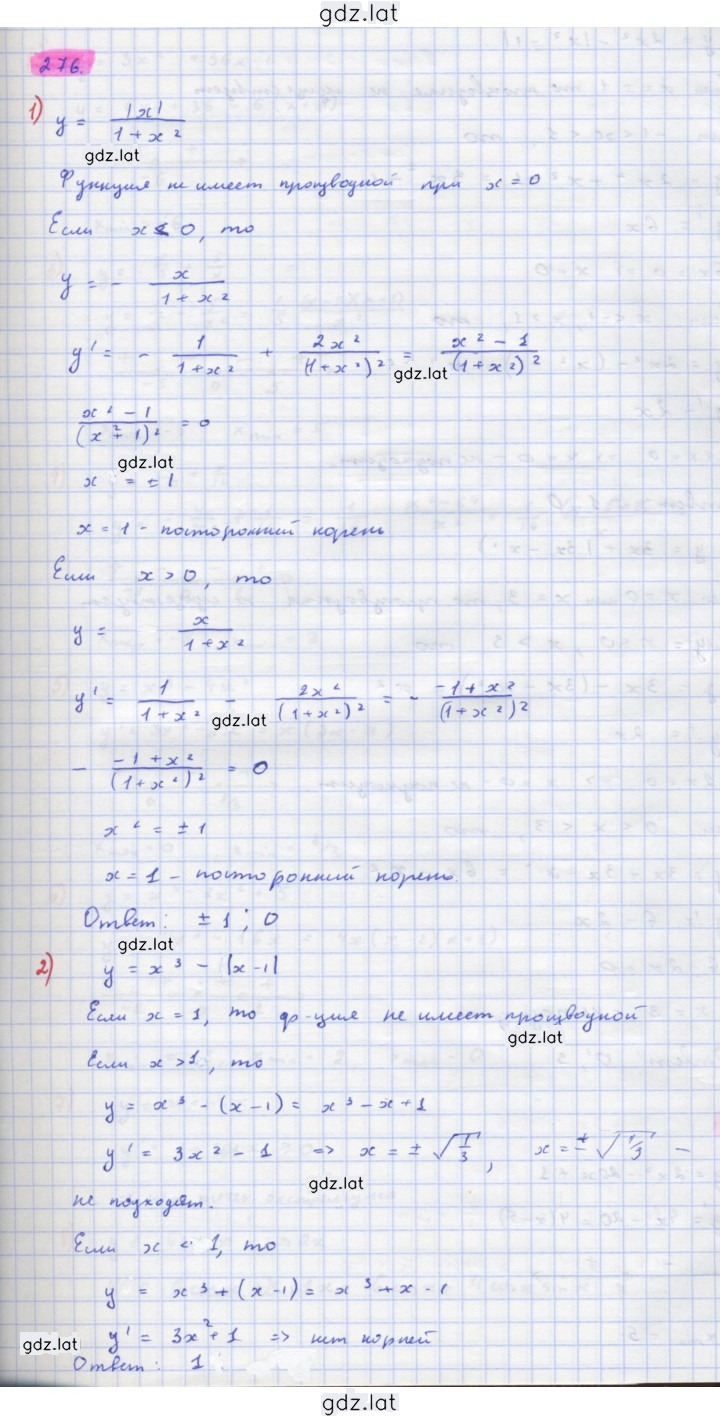 gdz.lat
276.
1) y = |x| / (1 + x²)
gdz.lat
Функция не имеет производной при x = 0
Если x < 0, то
y = - x / (1 + x²)
y' = - 1 / (1 + x²) + 2x² / (1 + x²)² = (x² - 1) / (1 + x²)²
gdz.lat
(x² - 1) / (x² + 1)² = 0
gdz.lat
x = ±1
x = 1 - посторонний корень
Если x > 0, то
y = x / (1 + x²)
y' = 1 / (1 + x²) - 2x² / (1 + x²)² = - (-1 + x²) / (1 + x²)²
gdz.lat
- (-1 + x²) / (1 + x²)² = 0
x² = ±1
x = 1 - посторонний корень.
Ответ: ±1; 0
gdz.lat
2) y = x³ - |x - 1|
Если x = 1, то ф-ция не имеет производной
gdz.lat
Если x > 1, то
y = x³ - (x - 1) = x³ - x + 1
y' = 3x² - 1 => x = ± √(1/3), x = ± √(1/3) -
gdz.lat
не подходят.
Если x < 1, то
y = x³ + (x - 1) = x³ + x - 1
y' = 3x² + 1 => нет корней
gdz.lat
Ответ: 1
gdz.lat